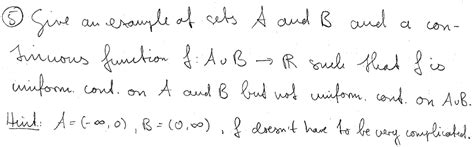 ⑤ Give an example of sets A and B and a con-
tinuous function f: A∪B → ℝ such that f is
uniform. cont. on A and B but not uniform. cont. on A∪B.
Hint: A=(-∞,0), B=(0,∞), f doesn't have to be very complicated.